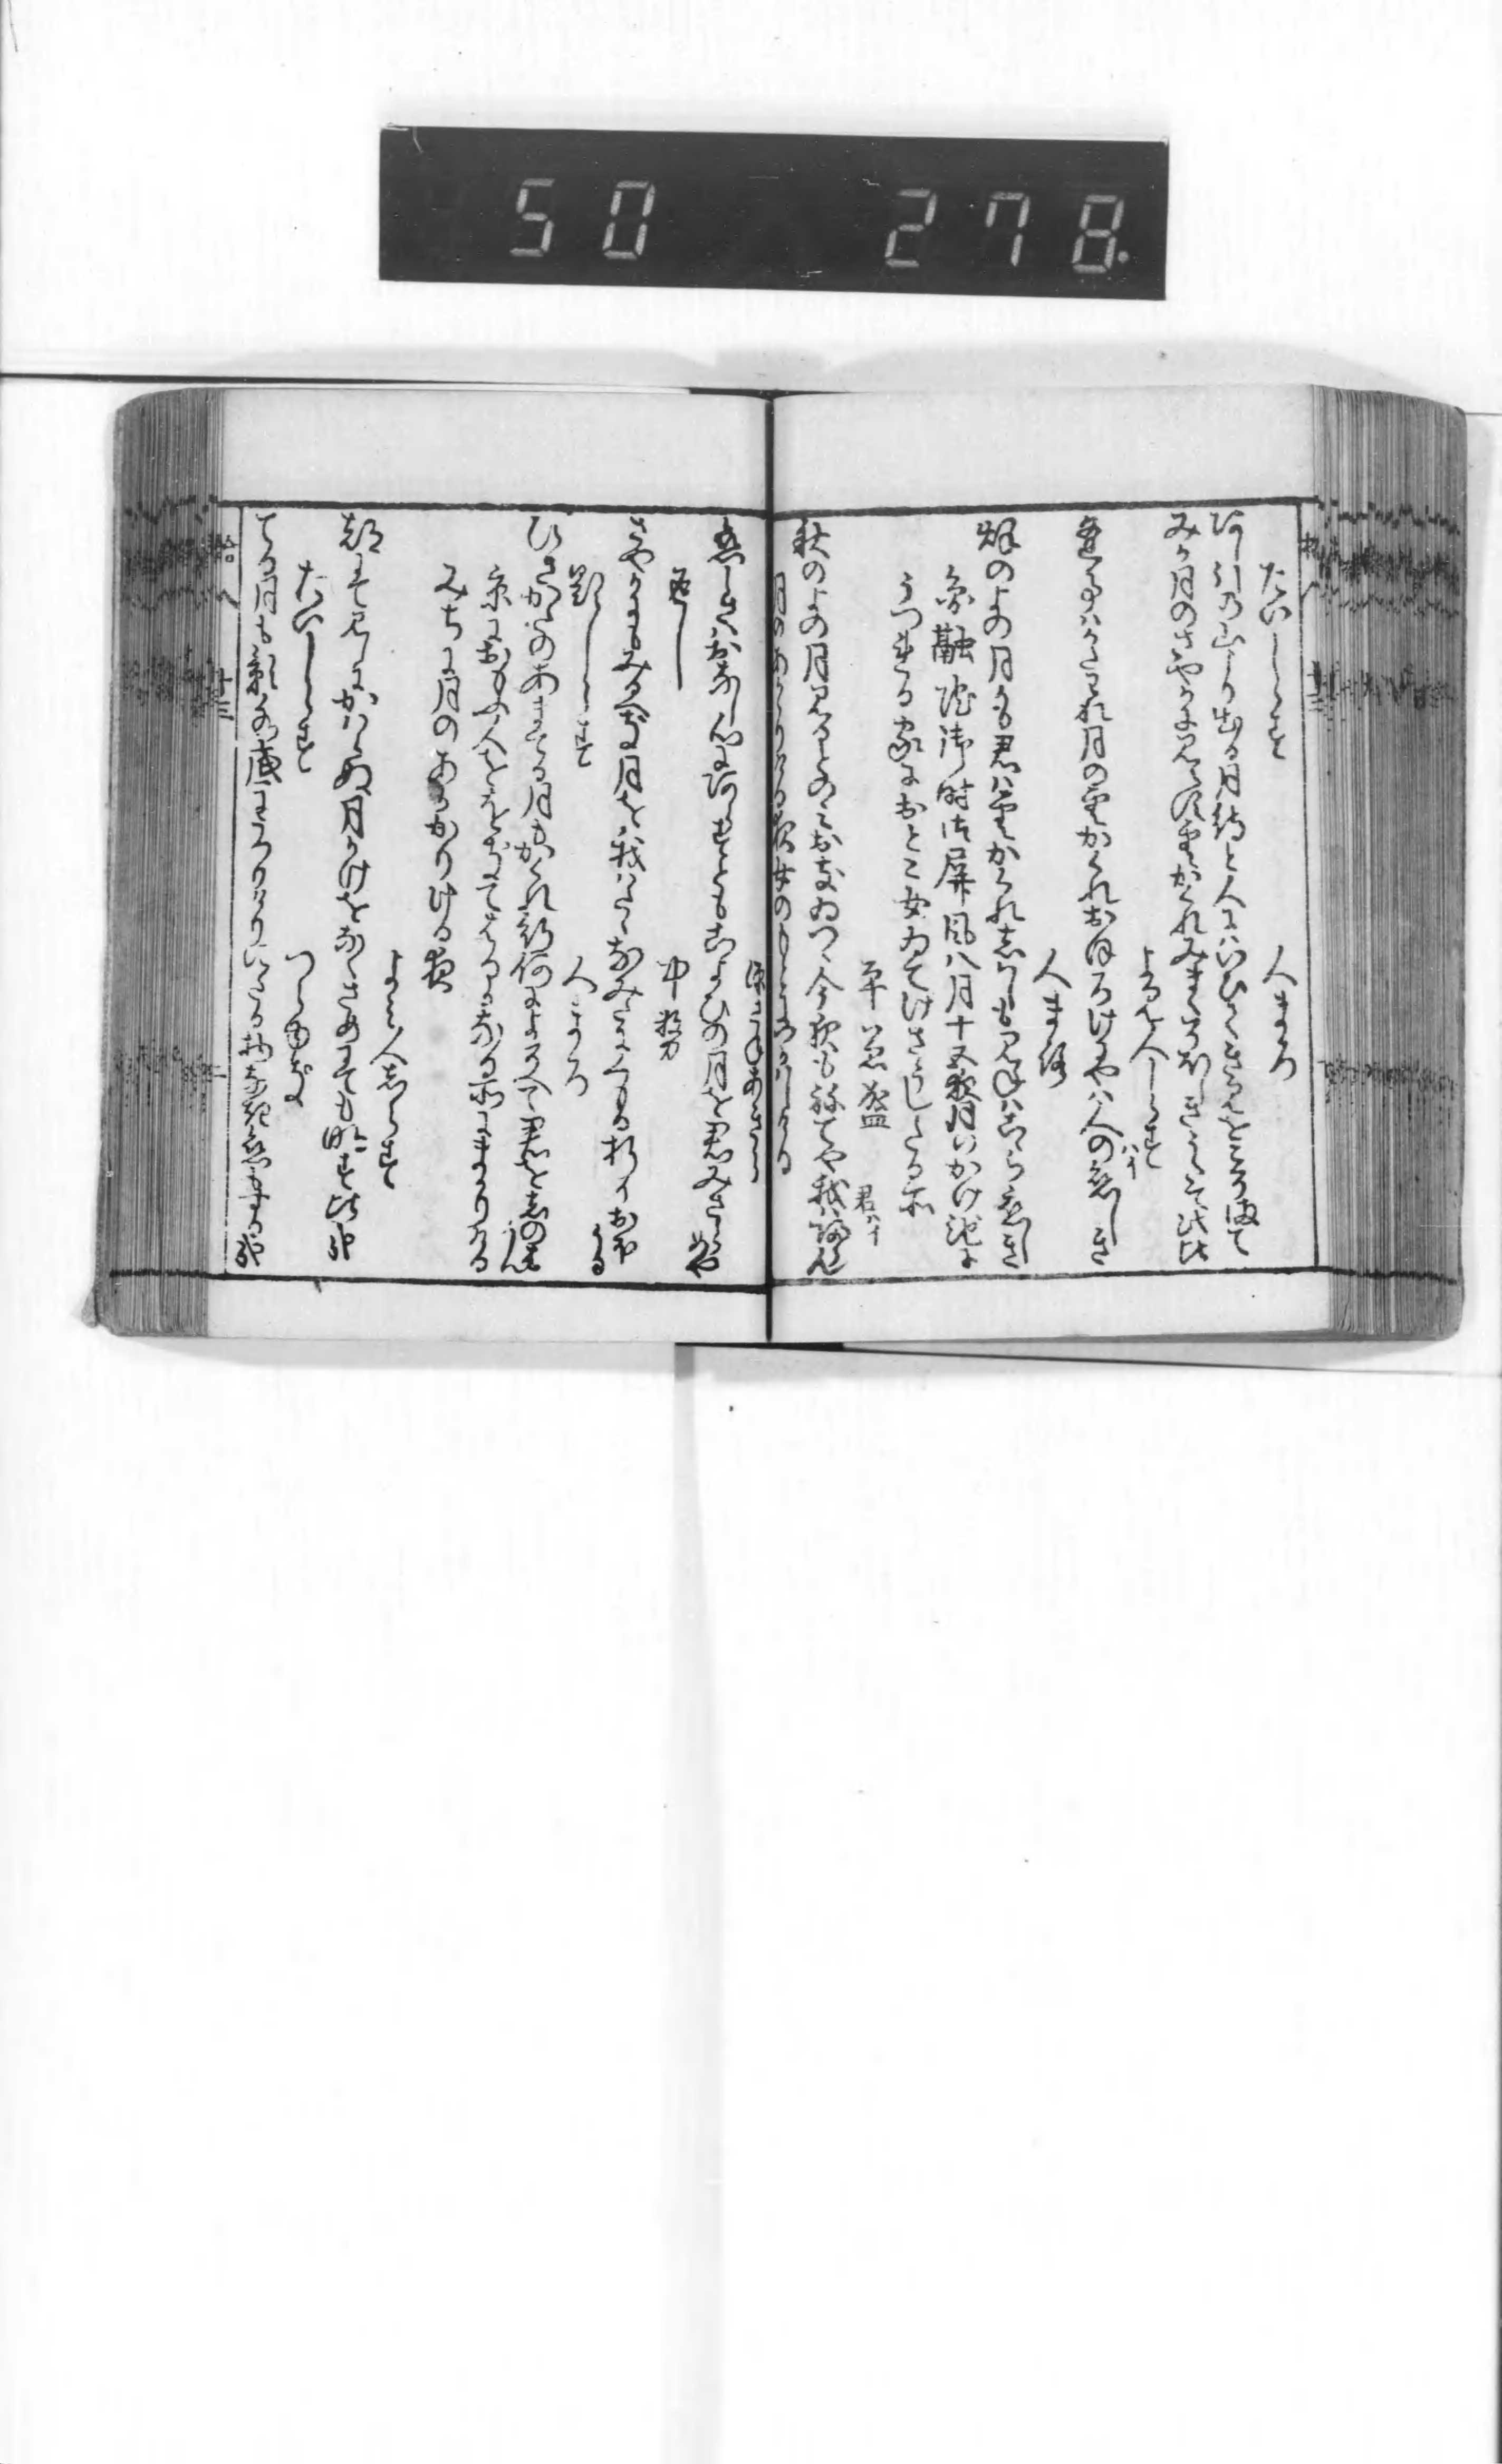 たいしらす　人まろ
あし引の山より出る月待と人にはいひてきみをこそまて
みか月のさやかに見えす雲かくれみまくそほしきうたて此比
よみ人しらす
逢事はかたわれ月の雲かくれおほろけにやは人の恋しき
ハイ
人まろ
秋の夜の月かも君は雲かくれしはしも見ねはこゝら恋しき
円融院御時御屏風八月十五夜月のかけ池に
うつれる家におとこ女ゐてけさうしたる所
平兼盛
秋のよの月見るとのみおきゐつゝ今夜も祢てや我は帰らん
君ハイ
月のあかゝりける夜女のもとにつかはしける
源さねあきら
恋しさはおなし心にあらすともこよひの月を君みさらめや
返し　中務
さやかにもみるへき月を我はたゝなみたにくもる折そおほかる
題しらす　人まろ
ひさかたのあまてる月もかくれ行何によそへて君をしのはん
京におもふ人をゝきてはるかなる所にまかりける
みちに月のあかゝりける夜
よみ人しらす
都にて見しにかはらぬ月かけをなくさめにてもあかす比哉
たいしらす　つらゆき
てる月も影水底にうつりけりにたる物なき恋もする哉
拾　十三
50 278.